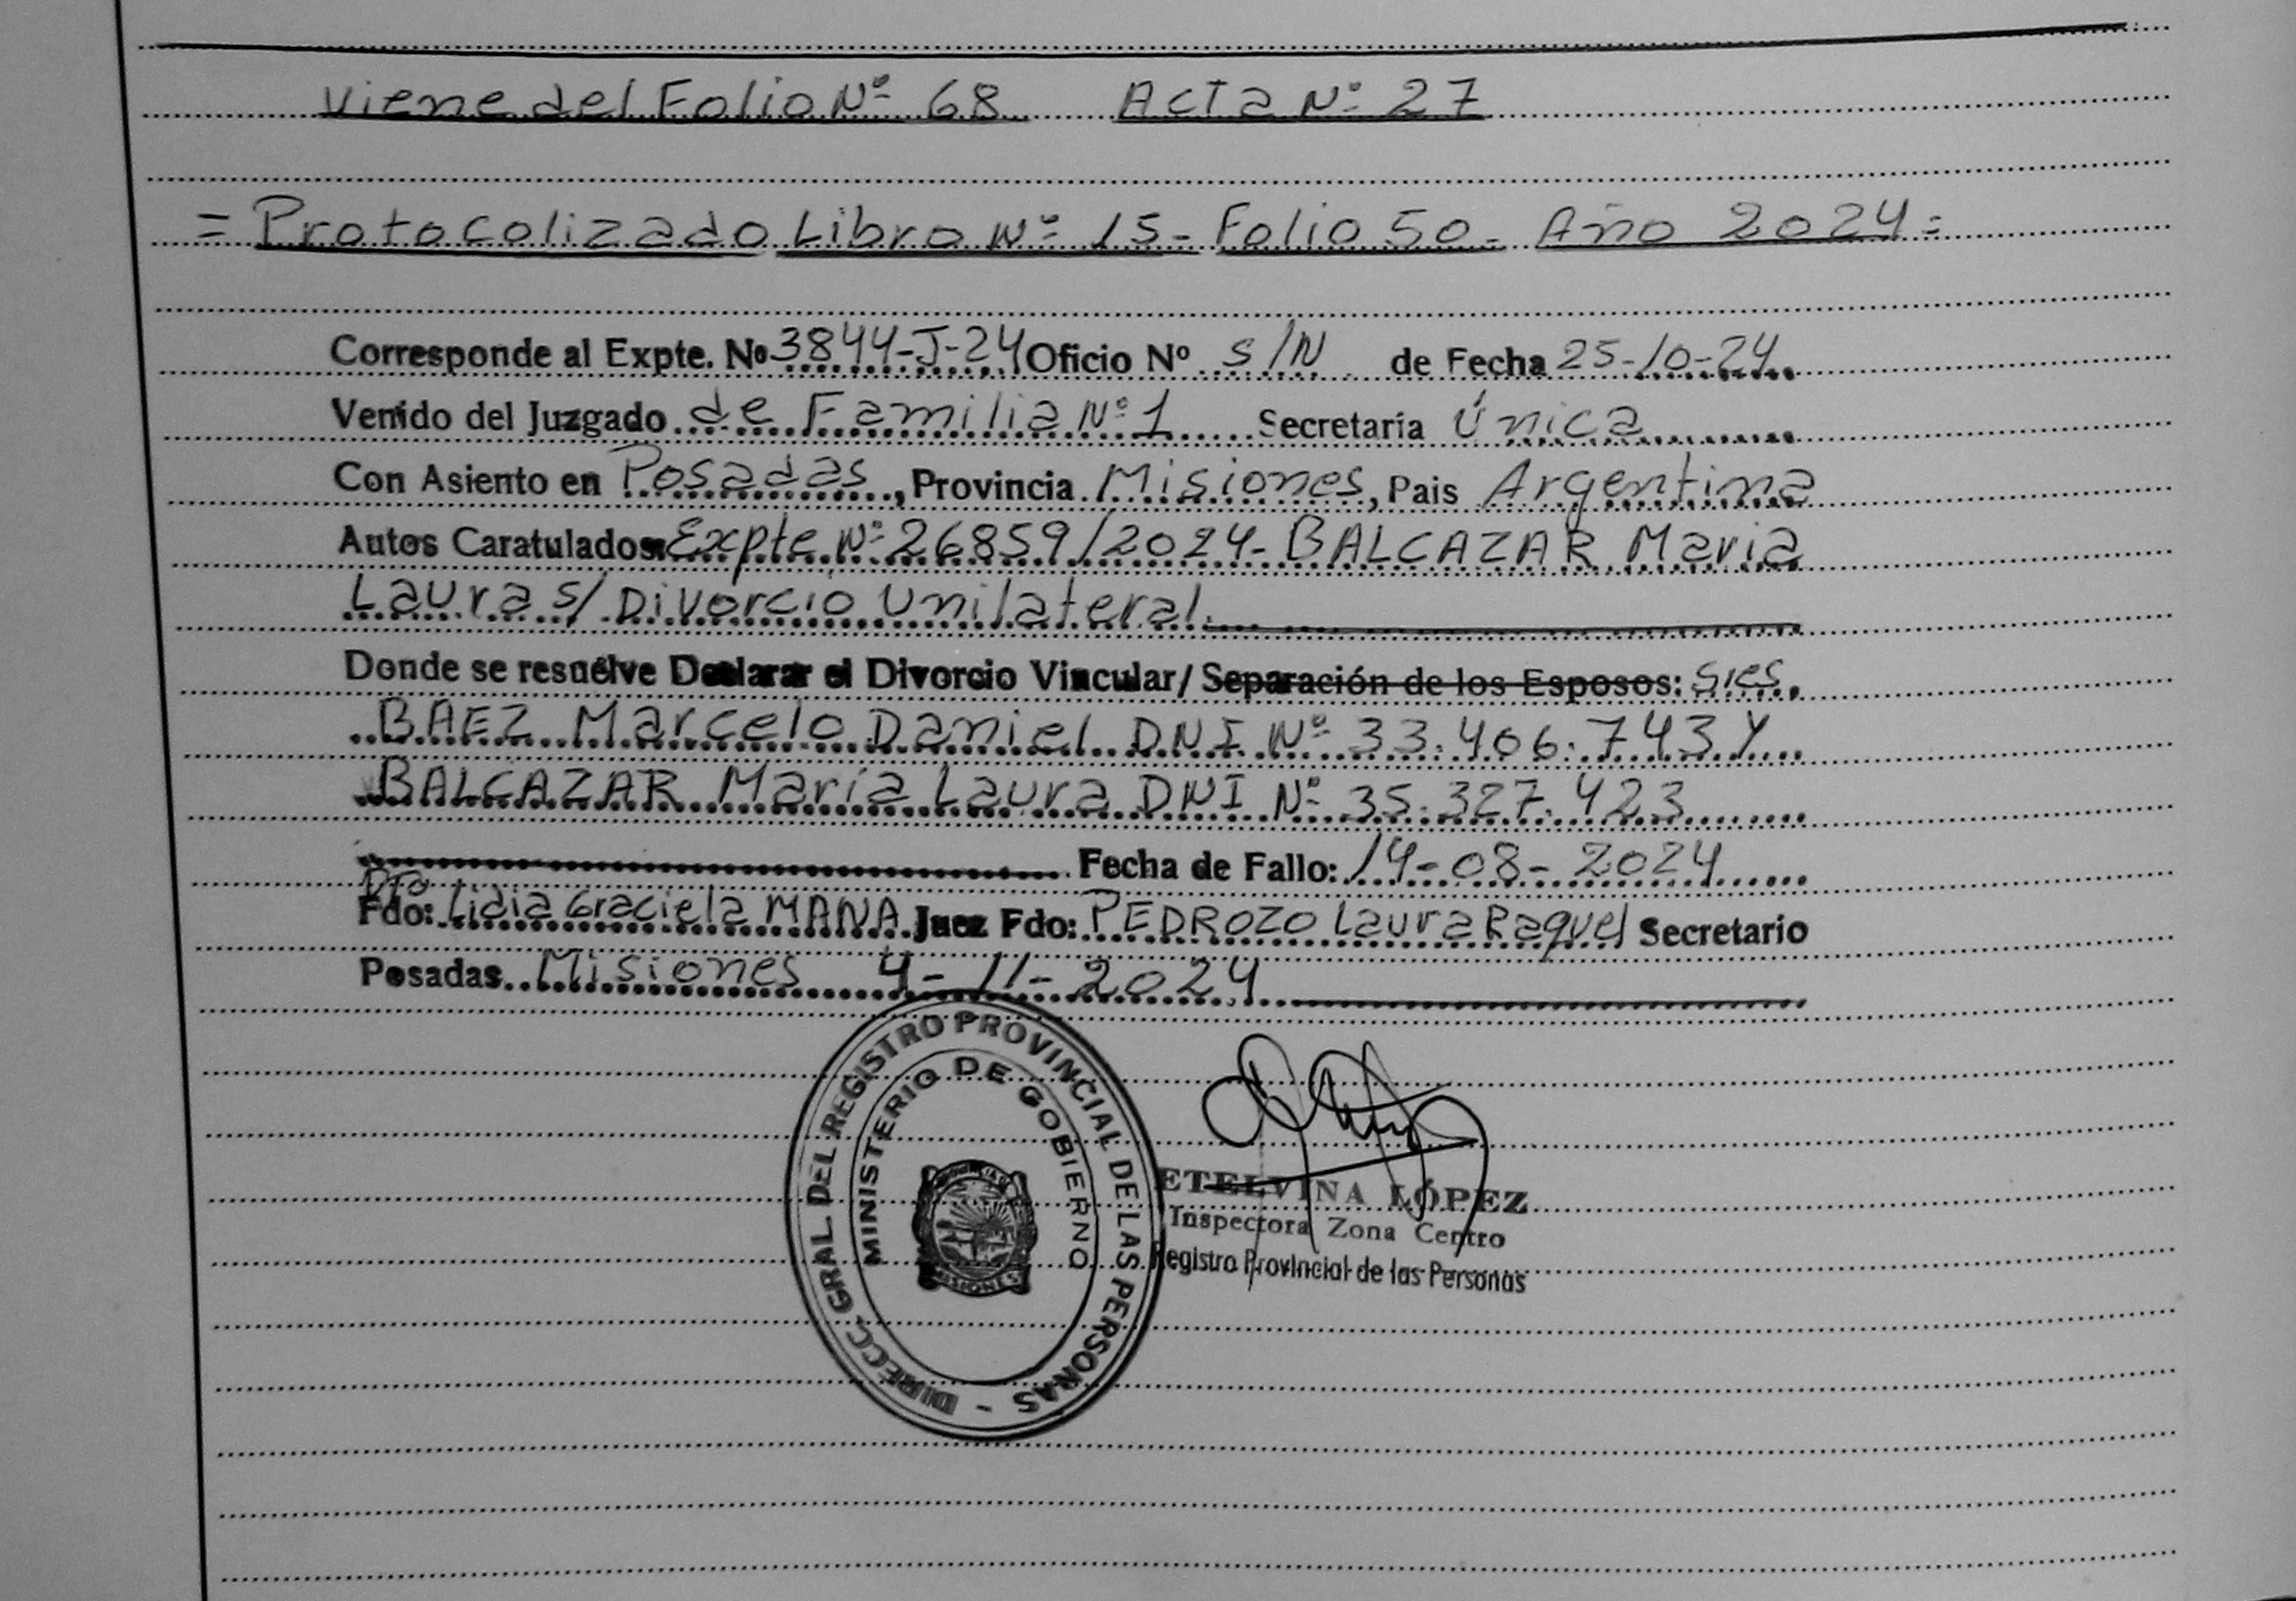 Viene del Folio Nº 68 Acta Nº 27
= Protocolizado Libro Nº 15- Folio 50- Año 2024=
Corresponde al Expte. Nº 3844-J-24 Oficio Nº S/N de Fecha 25-10-24
Venido del Juzgado de Familia Nº 1 Secretaría Única
Con Asiento en Posadas, Provincia Misiones, Pais Argentina
Autos Caratulados: Expte Nº 26859/2024- BALCAZAR Maria
Laura s/ Divorcio Unilateral
Donde se resuelve Declarar el Divorcio Vincular/ Separación de los Esposos: Sres.
BAEZ Marcelo Daniel DNI Nº 33.406.743 Y
BALCAZAR María Laura DNI Nº 35.327.423
Fecha de Fallo: 14-08-2024
Fdo: Lidia Graciela MANA Juez Fdo: PEDROZO Laura Raquel Secretario
Posadas Misiones 4-11-2024
DIRECC. GRAL DEL REGISTRO PROVINCIAL DE LAS PERSONAS -
MINISTERIO DE GOBIERNO
MISIONES
ETELVINA LÓPEZ
Inspectora Zona Centro
Registro Provincial de las Personas